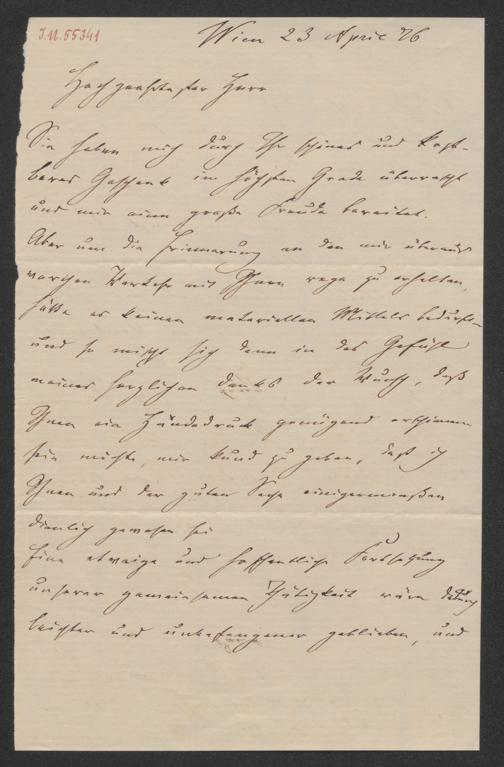 I.N. 55341
Wien 23 April 76
Hochgeehrtester Herr
Sie haben mich durch Ihr schönes und kost-
bares Geschenk im höchsten Grade überrascht
und mir eine große Freude bereitet.
Aber um die Erinnerung an den mir überaus
werthen Verkehr mit Ihnen rege zu erhalten,
hätte es keinen materiellen Mittels bedurft
und so mischt sich denn in das Gefühl
meines herzlichen Danks der Wunsch, daß
Ihnen ein Händedruck genügend erschienen
sein möchte, mir kund zu geben, daß ich
Ihnen und der guten Sache einigermaßen
dienlich gewesen sei
Eine etwaige und hoffentliche Fortsetzung
unserer gemeinsamen Thätigkeit wäre dadurch
leichter und unbefangener geblieben, und